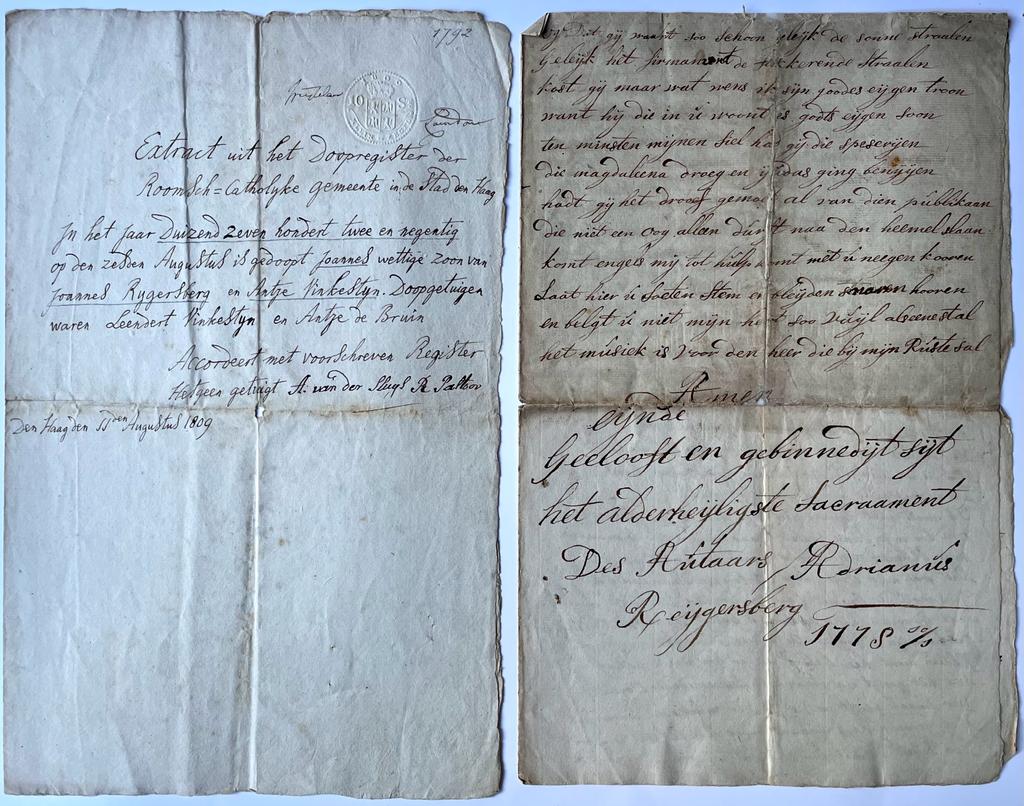 1792
Extract uit het Doopregister der
Roomsch=Catholyke gemeente in de Stad den Haag
In het Jaar Duizend Zeven hondert twee en negentig
op den zesden Augustus is gedoopt Joannes wettige zoon van
Joannes Rygersberg en Antje Vinkestyn. Doopgetuigen
waren Leendert Vinkestyn en Antje de Bruin
Accordeert met voorschreven Register
Hetgeen getuigt A. van der Sluys R. Pastoor
Den Haag den 11den Augustus 1809
Dat gij waart soo schoon gelijk de sonne straalen
Gelijk het firmament de flikkerende straalen
kost gij maar wat wens ik sijn goodes eijgen troon
want hij die in u woont is godts eijgen soon
ten minsten mijnen siel had gij die speserijen
die magdalena droeg en
hadt gij het droef gemoet al van dien publikaan
die niet een oog allan durft naa den heemel slaan
komt engels mij tot hulp komt met u neegen kooren
Laat hier u soeten stem en blijden snaaren hooren
en belgt u niet mijn hert soo Vuijl als eenestal
het musiek is Voor den heer die bij mijn Ruste sal
Amen
eijnde
Geeloost en gebinnedijt sijt
het alderheijligste Sacraament
Des Autaars / Adrianus
Reijgersberg
1778